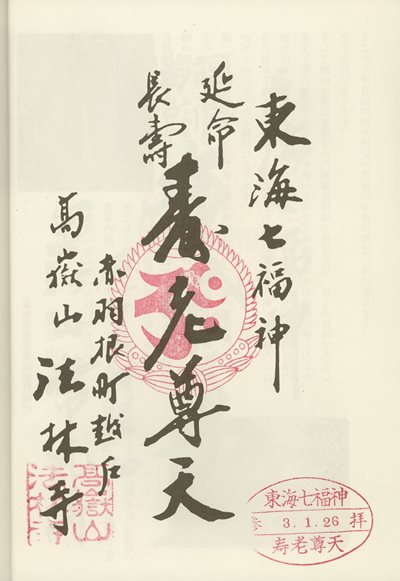 東海七福神
延命
長壽
壽老尊天
赤羽根町越戸
高嶽山 法林寺
高嶽山
法林寺
東海七福神
参 3.1.26 拝
寿老尊天